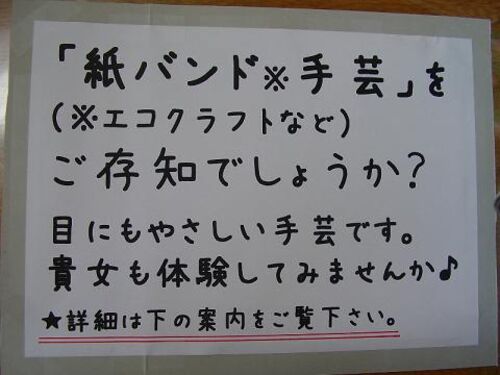 「紙バンド※手芸」を
(※エコクラフトなど)
ご存知でしょうか?
目にもやさしい手芸です。
貴女も体験してみませんか♪
★詳細は下の案内をご覧下さい。